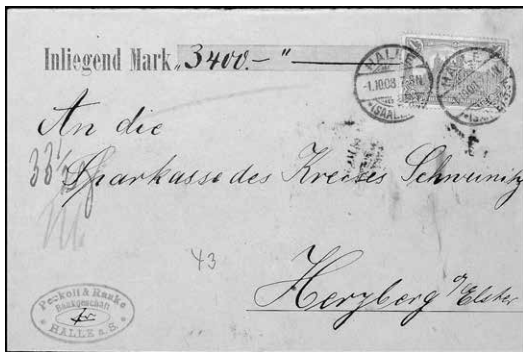 Inliegend Mark „3400.–"
HALLE
-1.10.08.7-8N.
*(SAALE)
HALLE
(SAALE)
An die
33½
Sparkasse des Kreises Schweinitz
43
Herzberg a/Elster
Peckolt & Raake
Bankgeschäft
fr
HALLE a. S.